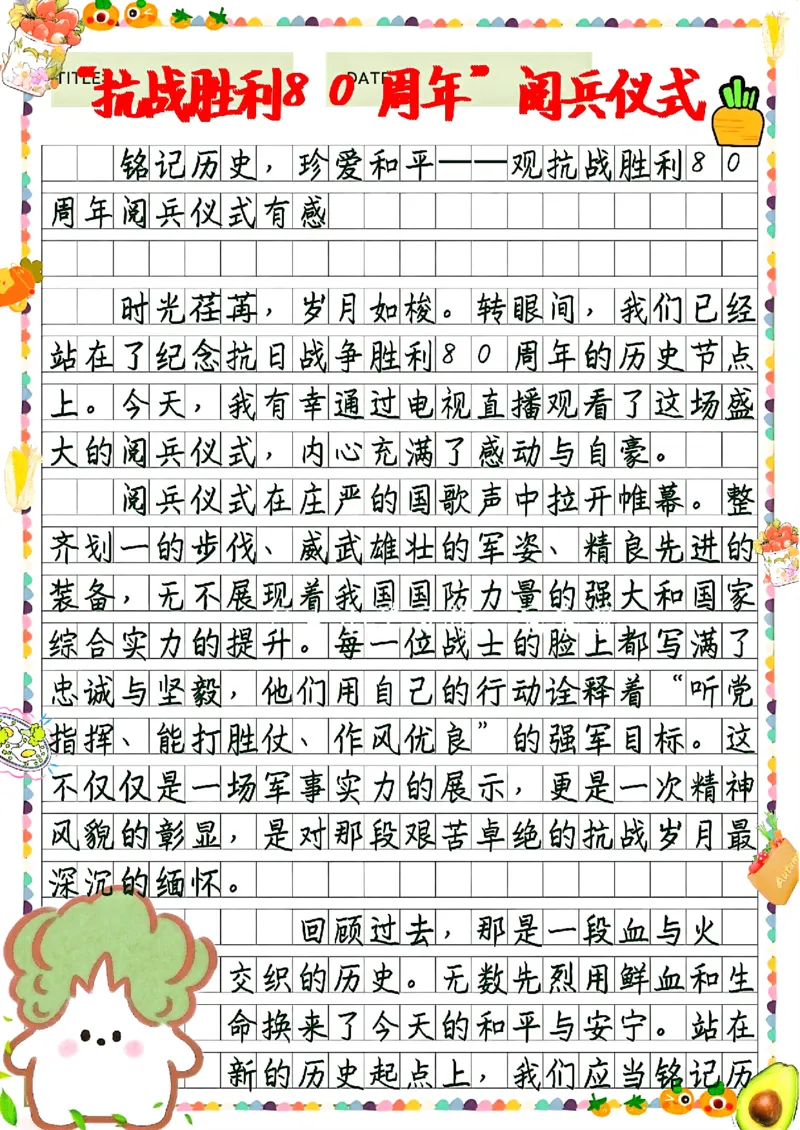 TITLE: DATE
“抗战胜利80周年”阅兵仪式
铭记历史，珍爱和平——观抗战胜利80
周年阅兵仪式有感
时光荏苒，岁月如梭。转眼间，我们已经
站在了纪念抗日战争胜利80周年的历史节点
上。今天，我有幸通过电视直播观看了这场盛
大的阅兵仪式，内心充满了感动与自豪。
阅兵仪式在庄严的国歌声中拉开帷幕。整
齐划一的步伐、威武雄壮的军姿、精良先进的
装备，无不展现着我国国防力量的强大和国家
综合实力的提升。每一位战士的脸上都写满了
忠诚与坚毅，他们用自己的行动诠释着“听党
指挥、能打胜仗、作风优良”的强军目标。这
不仅仅是一场军事实力的展示，更是一次精神
风貌的彰显，是对那段艰苦卓绝的抗战岁月最
深沉的缅怀。
回顾过去，那是一段血与火
交织的历史。无数先烈用鲜血和生
命换来了今天的和平与安宁。站在
新的历史起点上，我们应当铭记历